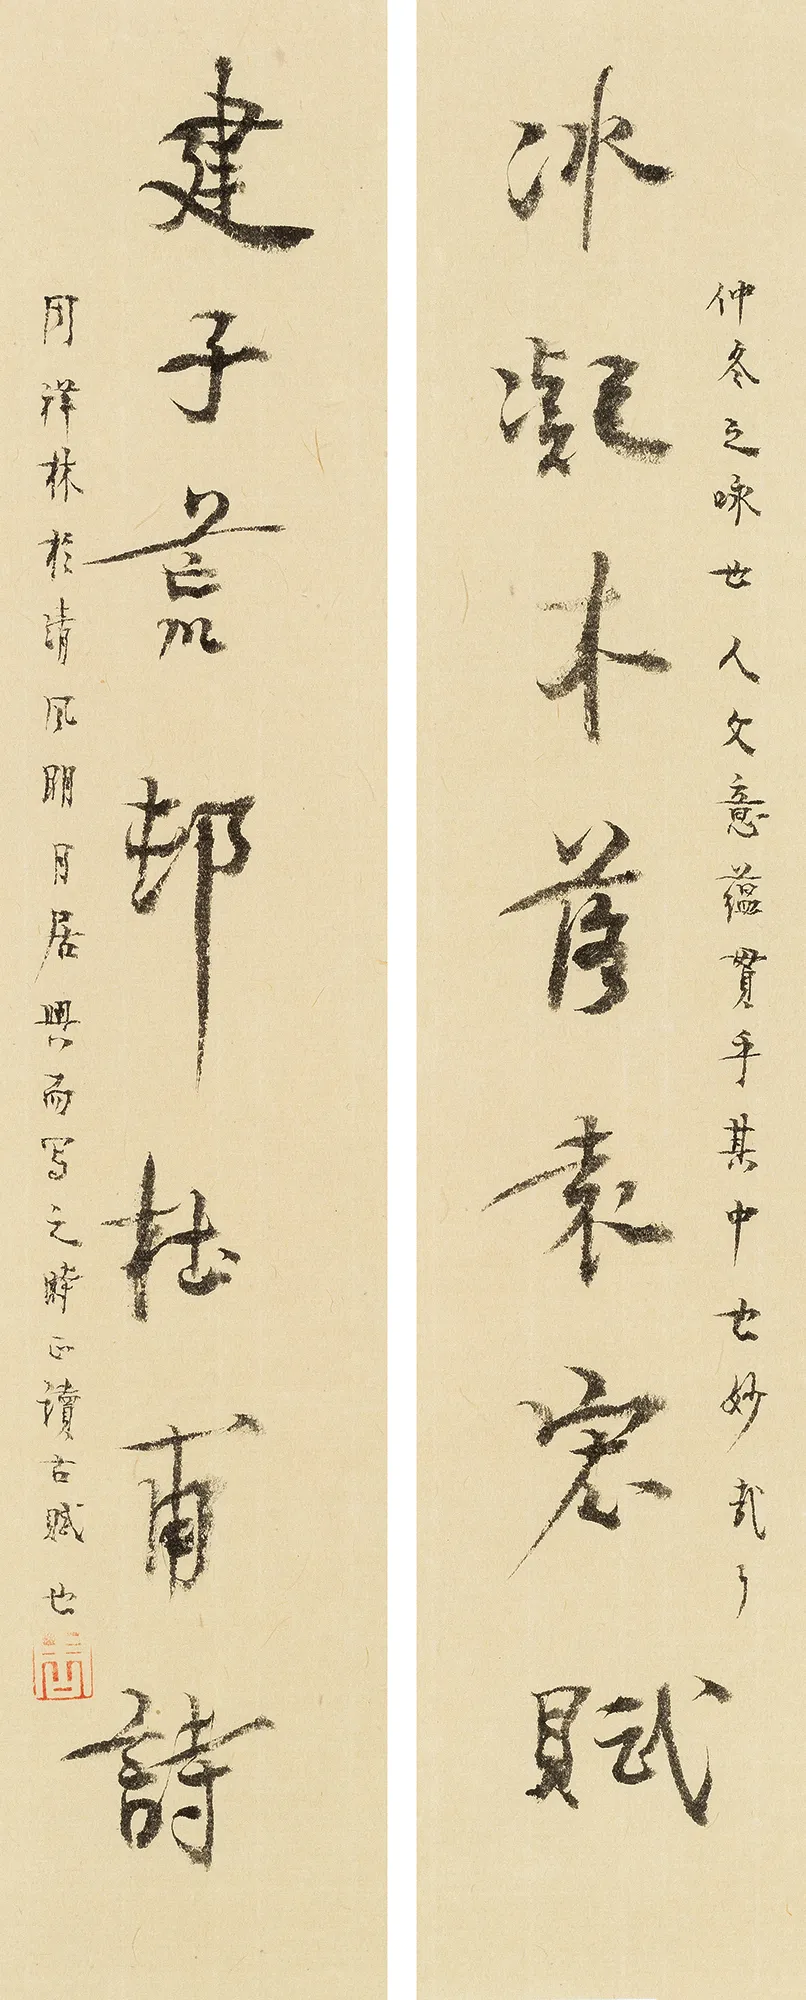 仲冬之咏世人文意蘊貫乎其中也妙哉
冰凝木落袁宏賦
建子荒邨杜甫詩
周祥林於清風明月居興而写之時正讀古賦也